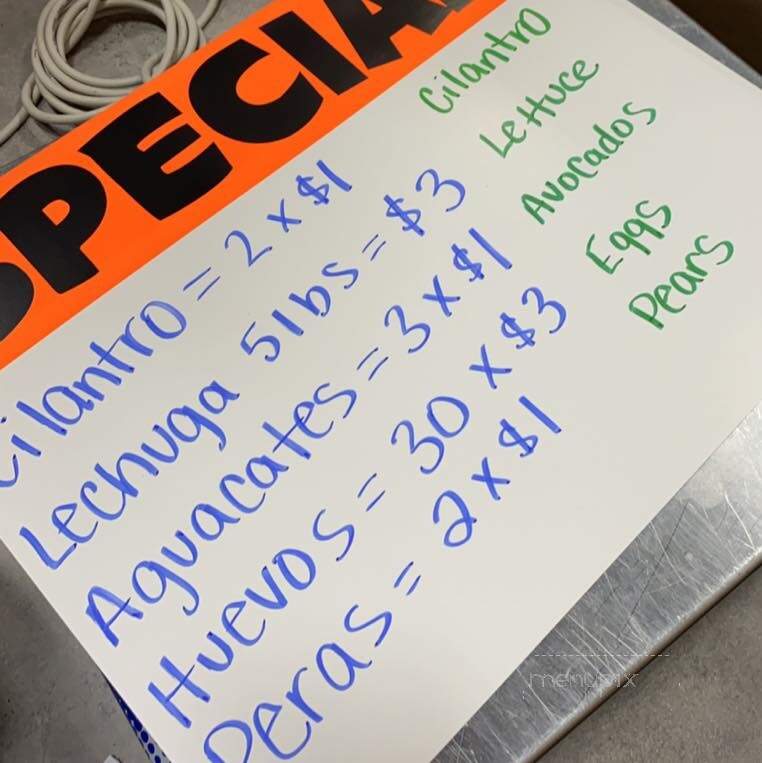 SPECIAL
Cilantro = 2 x $1
Lechuga 5lbs = $3
Aguacates = 3 x $1
Huevos = 30 x $3
Peras = 2 x $1
Cilantro
Lettuce
Avocados
Eggs
Pears
menupix